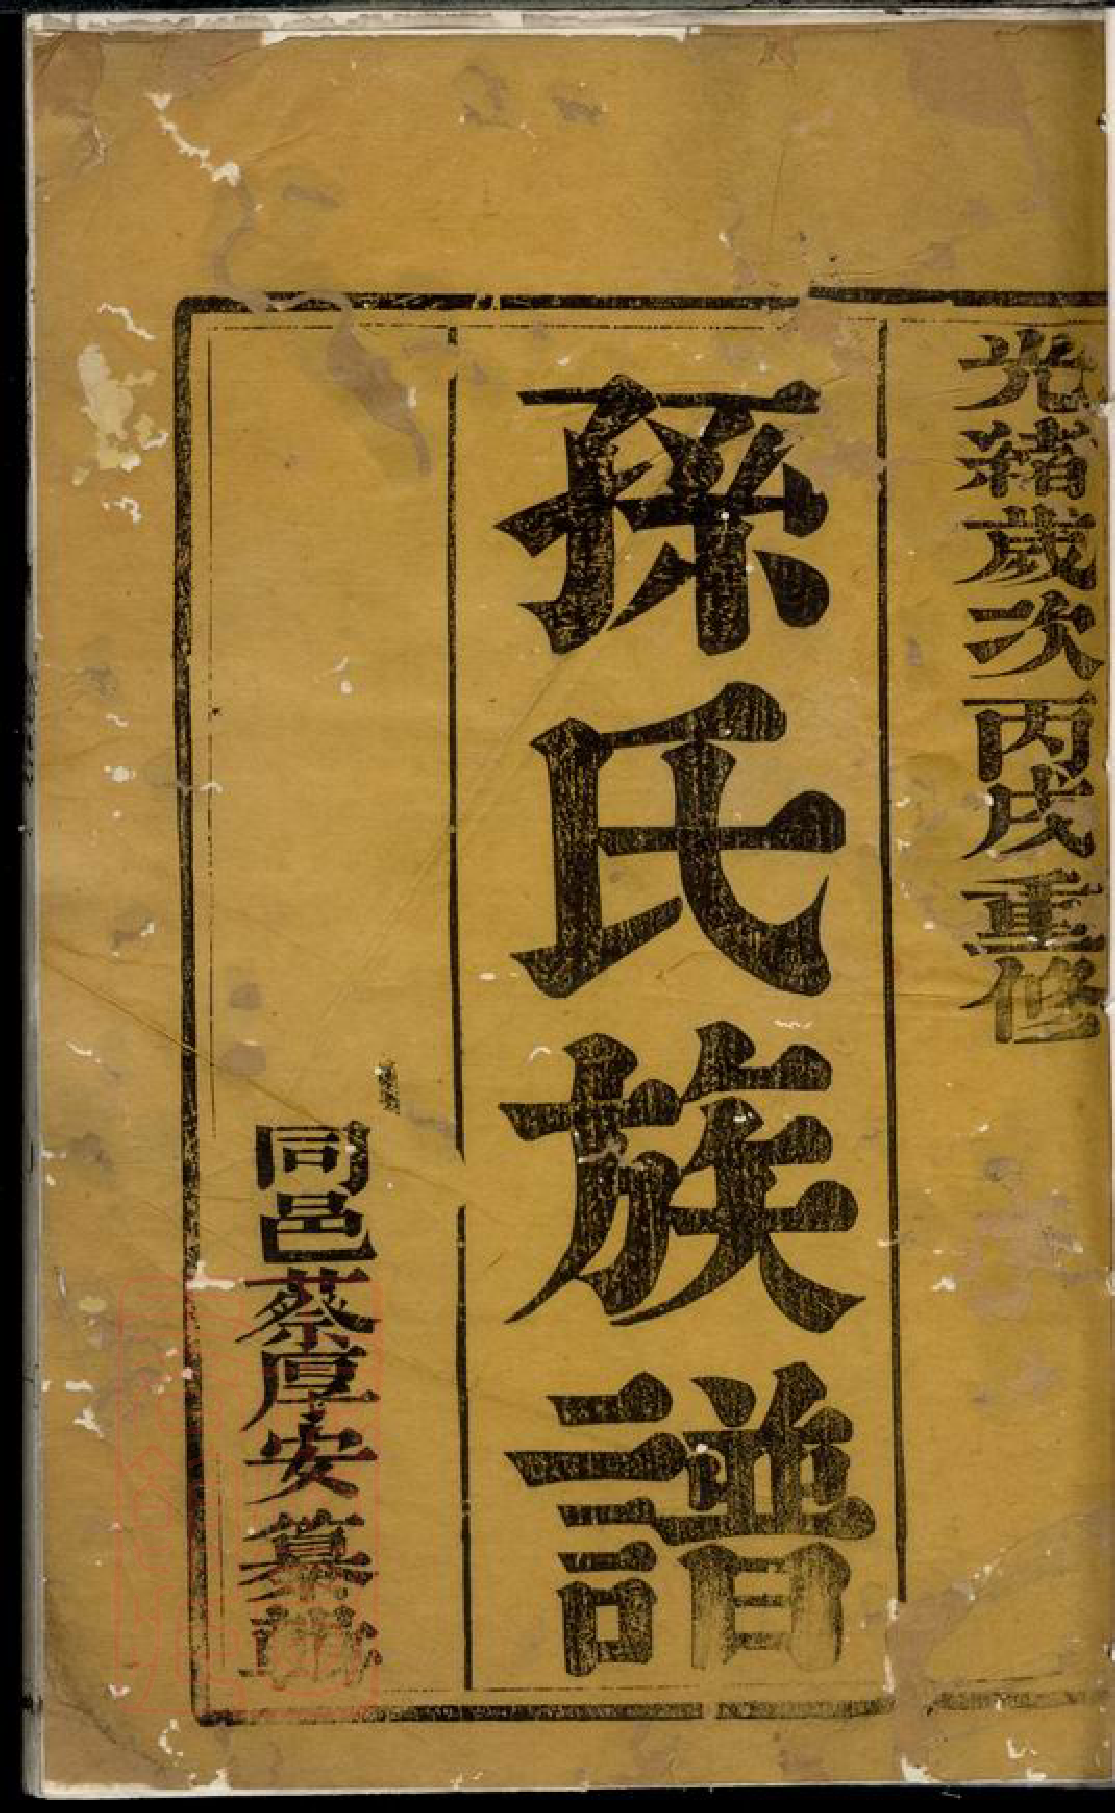 光緒歲次丙戌重修
孫氏族譜
同邑蔡厚安篆